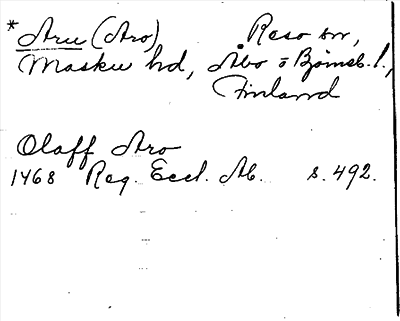 * Aru (Aro) Reso sn,
Masku hd, Åbo o Björneb. l.,
Finland
Olaff Aro
1468 Reg. Eccl. Ab. s. 492.